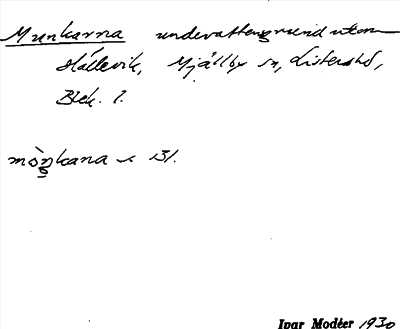 Munkarna undervattensgrund utom
Hällevik, Mjällby sn, Listers hd,
Blek. l.
mòŋkana
Ivar Modéer 1930